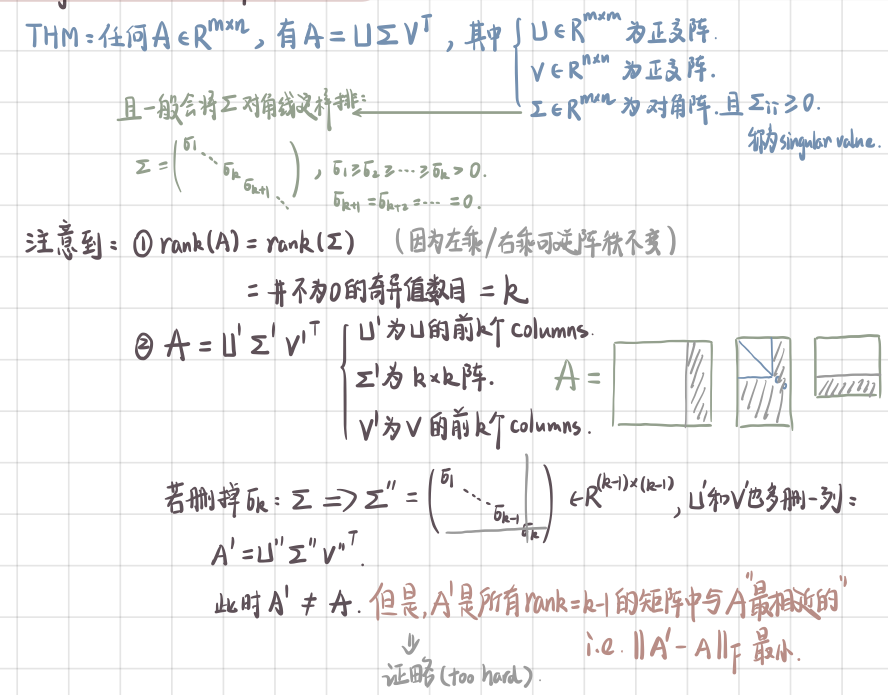 THM：任何 A ∈ R^{m×n}，有 A = U Σ V^T，其中 { U ∈ R^{m×m} 为正交阵.
V ∈ R^{n×n} 为正交阵.
Σ ∈ R^{m×n} 为对角阵.且 Σ_{ii} ≥ 0.
称为 singular value.
且一般会将 Σ 对角线这样排：
Σ = ( σ_1 ⋱ σ_k σ_{k+1} ⋱ ) ，σ_1 ≥ σ_2 ≥ … ≥ σ_k > 0.
σ_{k+1} = σ_{k+2} = … = 0.
注意到：① rank(A) = rank(Σ) （因为左乘/右乘可逆阵秩不变）
= #不为0的奇异值数目 = k
② A = U' Σ' V'^T { U' 为 U 的前k个 columns.
Σ' 为 k×k 阵.
V' 为 V 的前k个 columns.
A =
若删掉 σ_k：Σ => Σ'' = ( σ_1 ⋱ σ_{k-1} σ_k ) ∈ R^{(k-1)×(k-1)}，U'和V'也多删一列：
A' = U'' Σ'' V''^T.
此时 A' ≠ A. 但是，A' 是所有 rank = k-1 的矩阵中与 A "最相近的"
i.e. ||A' - A||_F 最小.
⇓
证略 (too hard).